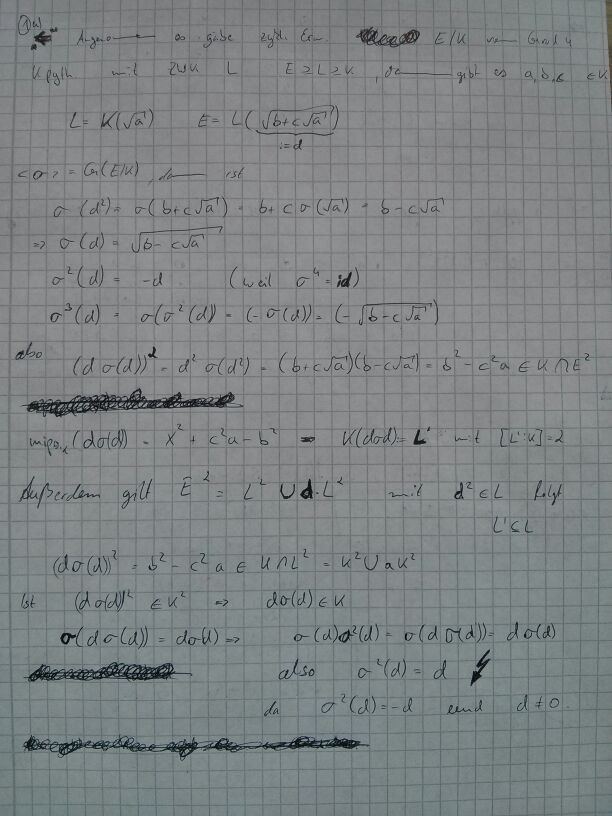 ① a)
Angeno— es gäbe zykl. Erw. E/K vom Grad 4
K pyth mit ZWK L E ⊇ L ⊇ K, da— gibt es a, b, c ∈ K
L = K(√a) E = L(√(b+c√a))
:= d
<σ> = Gal(E/K), da— ist
σ(d²) = σ(b+c√a) = b + c σ(√a) = b - c√a
⇒ σ(d) = √(b - c√a)
σ²(d) = -d (weil σ⁴ = id)
σ³(d) = σ(σ²(d)) = (-σ(d)) = (-√(b - c√a))
also (d σ(d))² = d² σ(d²) = (b+c√a)(b-c√a) = b² - c²a ∈ K ∩ E²
mipo_K (dσ(d)) = X² + c²a - b² ⇒ K(dσd) = L' mit [L':K] = 2
Außerdem gilt E² = L² ∪ d·L² mit d² ∈ L folgt
L' ⊆ L
(dσ(d))² = b² - c²a ∈ K ∩ L² = K² ∪ aK²
Ist (dσ(d))² ∈ K² ⇒ dσ(d) ∈ K
σ(dσ(d)) = dσ(d) ⇒ σ(d)σ²(d) = σ(dσ(d)) = dσ(d)
also σ²(d) = d
da σ²(d) = -d und d ≠ 0.